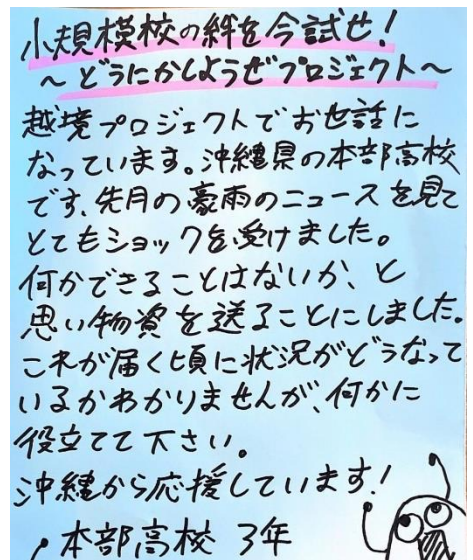 小規模校の絆を今試せ!
～どうにかしようぜプロジェクト～
越境プロジェクトでお世話に
なっています。沖縄県の本部高校
です、先月の豪雨のニュースを見て
とてもショックを受けました。
何かできることはないか、と
思い物資を送ることにしました。
これが届く頃に状況がどうなって
いるかわかりませんが、何かに
役立てて下さい。
沖縄から応援しています!
本部高校 3年